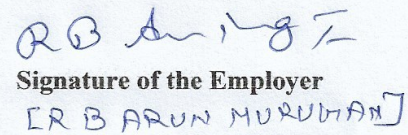 R B
Signature of the Employer
[R B ARUN MURUGHAN]